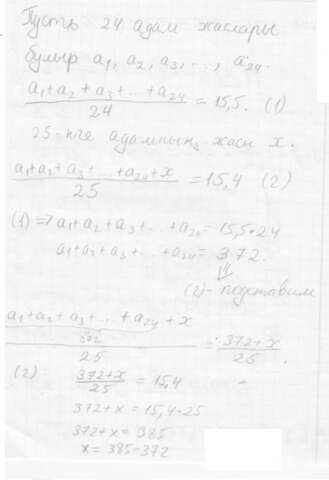 Пусть 24 адам жаслары
булыр a₁, a₂, a₃, ..., a₂₄.
(a₁+a₂+a₃+...+a₂₄)/24 = 15,5. (1)
25-нче адамның жасы x.
(a₁+a₂+a₃+...+a₂₄+x)/25 = 15,4 (2)
(1) => a₁+a₂+a₃+...+a₂₄ = 15,5*24
a₁+a₂+a₃+...+a₂₄ = 372.
⇓
(2) - подставим
(a₁+a₂+a₃+...+a₂₄+x)/25 = (372+x)/25.
372
(2): (372+x)/25 = 15,4
372+x = 15,4*25
372+x = 385
x = 385-372